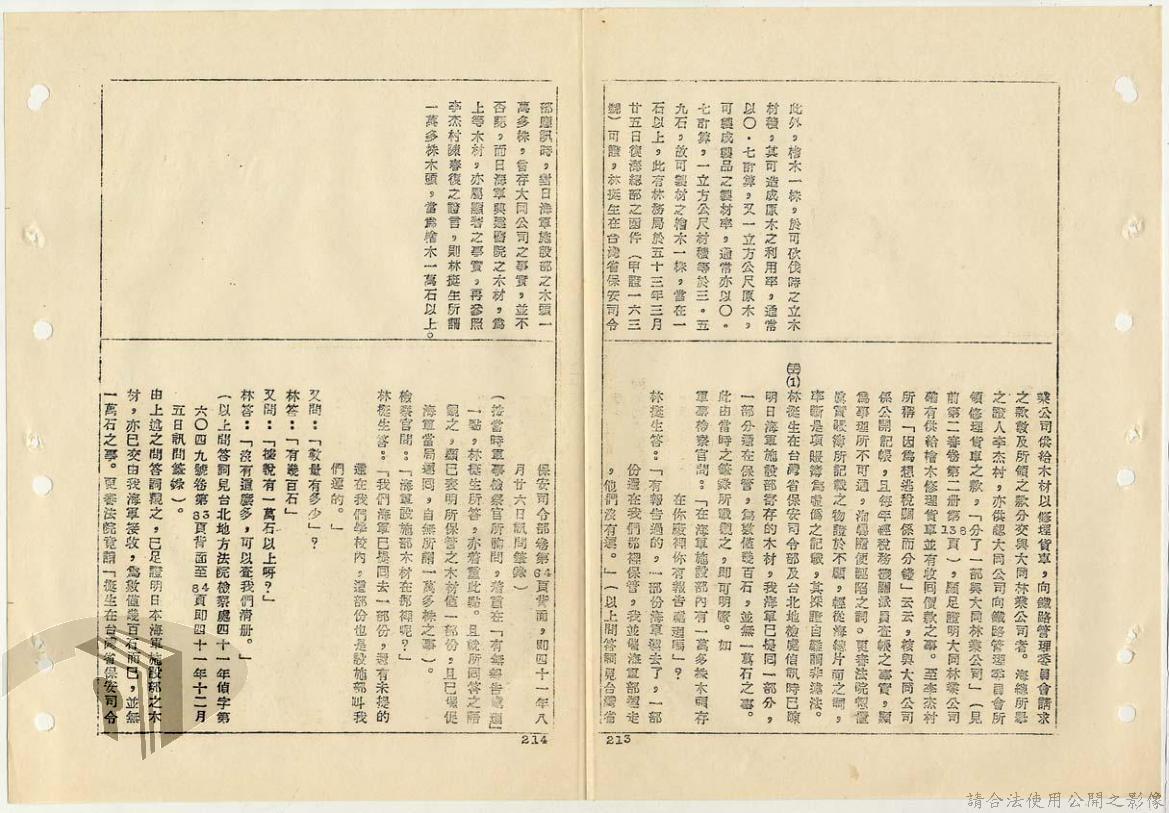 此外,檜木一株,於可砍伐時之立木
材積,其可造成原木之利用率,通常
以〇・七計算,又一立方公尺原木,
可製成製品之製材率,通常亦以〇・
七計算,一立方公尺材積等於三・五
九石,故可製材之檜木一株,當在一
石以上,此有林務局於五十三年三月
廿五日復海總部之函件(甲證一六三
號)可證,林挺生在台灣省保安司令
業公司供給木材以修理貨車,向鐵路管理委員會請求
之款數及所領之款分交與大同林業公司者。海總所舉
之證人李杰村,亦供認大同公司向鐵路管理委員會所
領修理貨車之款,「分了一部與大同林業公司」(見
前第二審卷第二册第138頁),顯足證明大同林業公司
確有供給檜木修理貨車並有收回價款之事。至李杰村
所稱「因為想逃稅關係而分錢」云云,核與大同公司
係公開記帳,且每年經稅務機關派員查帳之事實,顯
為事理所不可通,
眞實帳簿所記載之物證於不顧,輕從海總片面之詞,
率斷是項賬簿為虛偽之記載,其採證自難謂非違法。
(1)林挺生在台灣省保安司令部及台北地檢處偵訊時已陳
明日海軍施設部寄存的木材,我海軍已提回一部分,
一部分還在保管,為數僅幾百石,並無一萬石之事。
此由當時之筆錄所載觀之,即可明瞭。如
軍事檢察官問:「在海軍施設部內有一萬多株木頭存
在你廠裡你有報告處理嗎」?
林挺生答:「有報告過的,一部份海軍運去了,一部
份還在我們那裡保管,我並催海軍部運走
,他們沒有運。」(以上問答詞見台灣省
213
部應訊時,對日海軍施設部之木頭一
萬多株,會存大同公司之事實,並不
否認,而日海軍與建醫院之木材,為
上等木材,亦屬顯著之事實,再參照
李杰村陳春復之證言,則林挺生所謂
一萬多株木頭,當為檜木一萬石以上。
保安司令部卷第64頁背面,即四十一年八
月廿六日訊問筆錄)
(按當時軍事檢察官所詢問,着重在「有無報告處理」
一點,林挺生所答,亦着重此點。且就所回答之語
觀之,顯已表明所保管之木材僅一部份,且已催促
海軍當局運回,自無所謂一萬多株之事)。
檢察官問:「海軍設施部木材在那裡呢?」
林挺生答:「我們海軍已提回去一部份,還有未提的
還在我們學校內,這部份也是設施部叫我
們運的。」
又問:「數量有多少」?
林答:「有幾百石」
又問:「後說有一萬石以上呀?」
林答:「沒有這麼多,可以查我們清册。」
(以上問答詞見台北地方法院檢察處四十一年偵字第
六〇四九號卷第83頁背面至84頁即四十一年十二月
五日訊問筆錄)。
由上述之問答詞觀之,已足證明日本海軍施設部之木
材,亦已交由我海軍接收,為數僅幾百石而已,並無
一萬石之事。更審法院竟謂「挺生在台灣省保安司令
214
請合法使用公開之影像